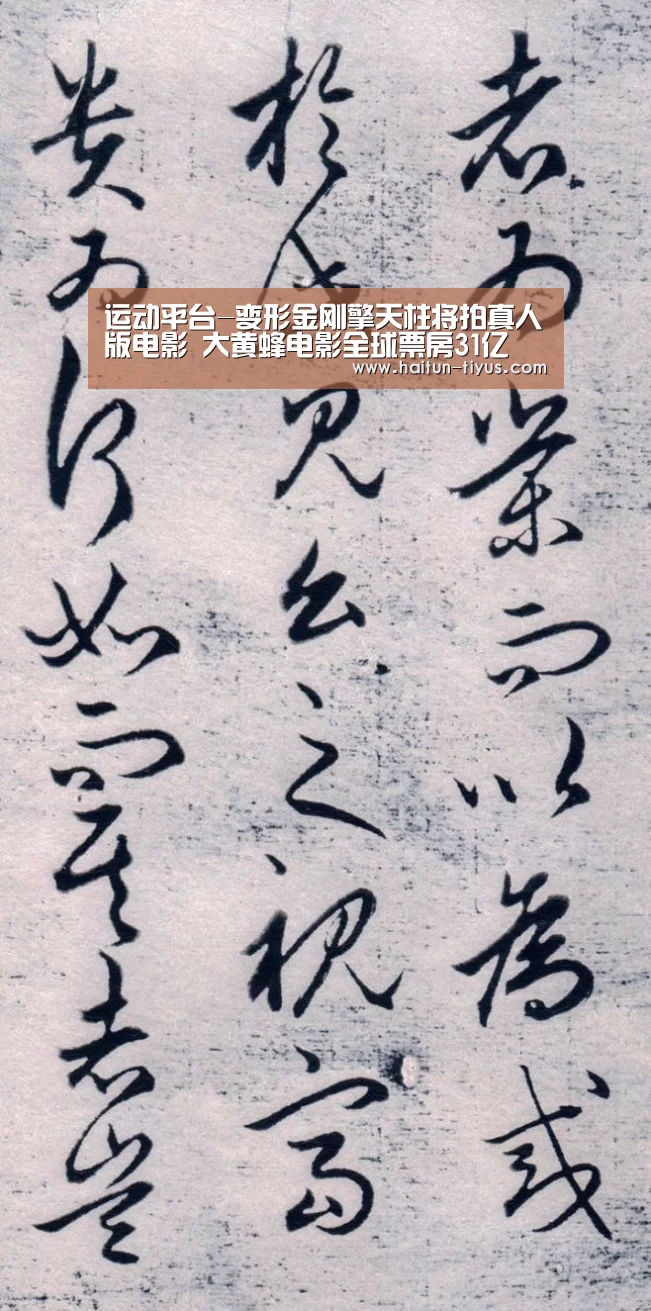 者為榮而以為戒
於此見公之視富
貴為何如而其志豈
运动平台-变形金刚擎天柱将拍真人
版电影 大黄蜂电影全球票房31亿
www.haitun-tiyus.com